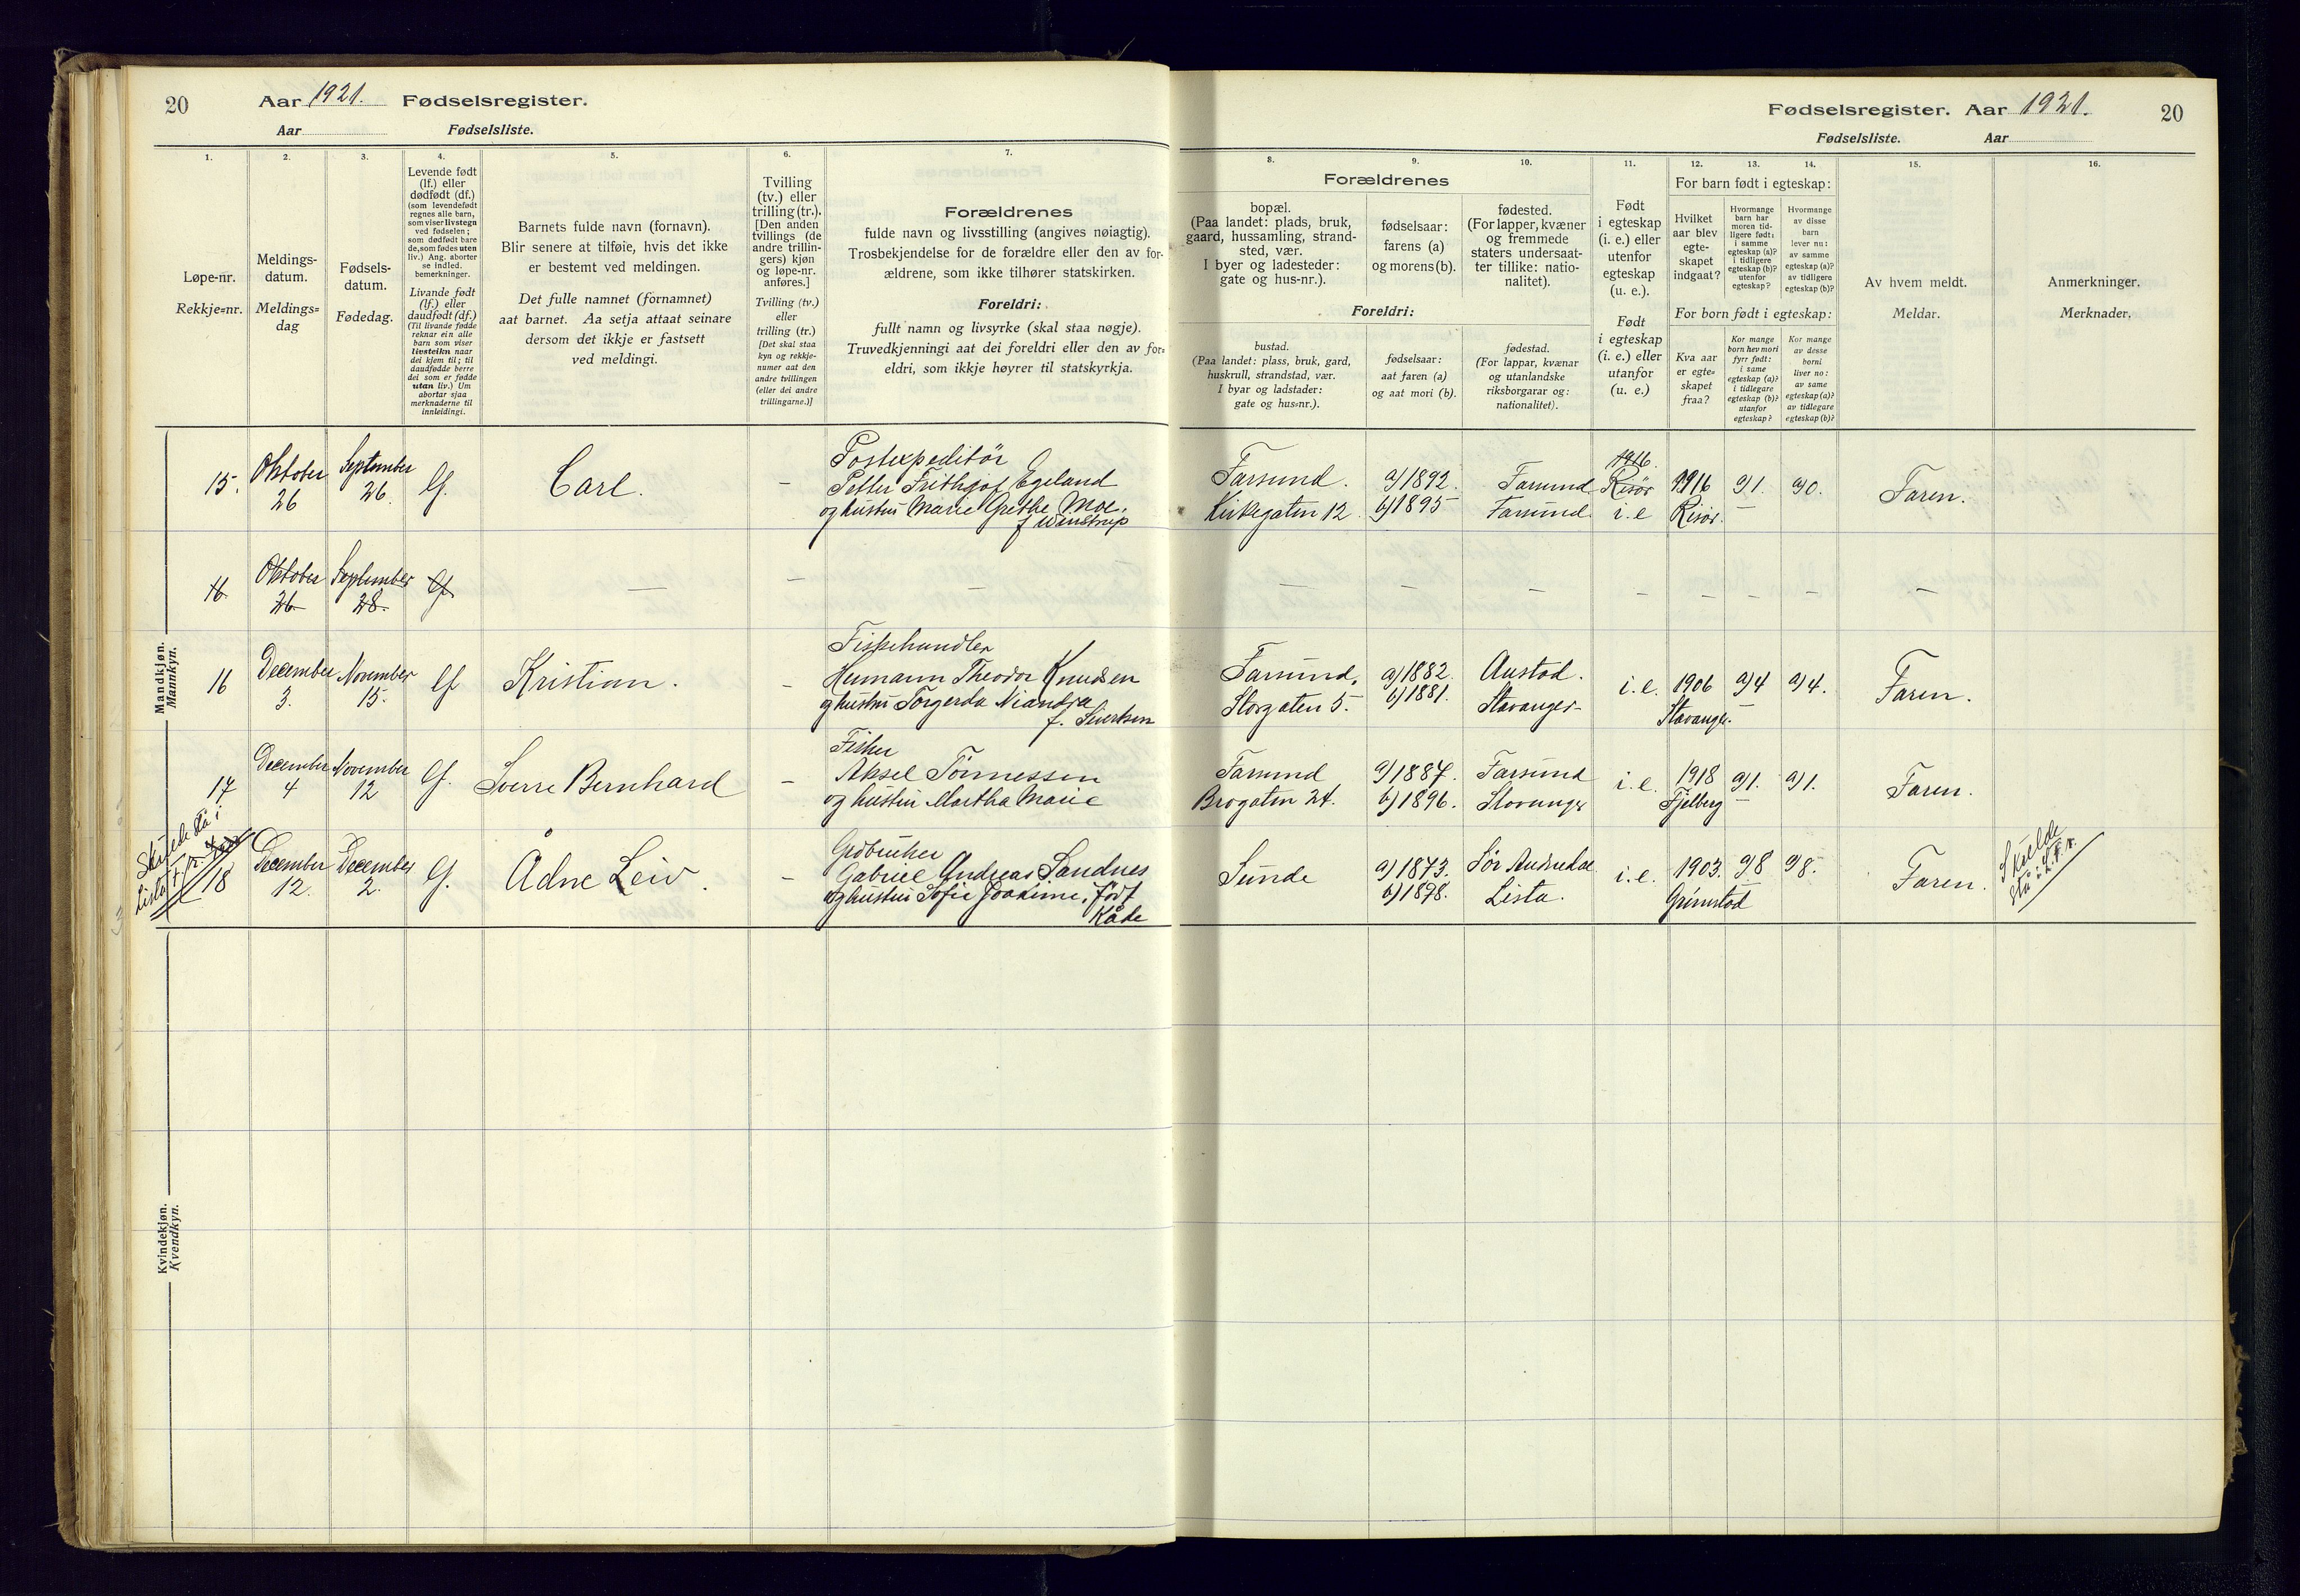 20 Aar 1921. Fødselsregister.
Aar Fødselsliste.
Fødselsregister. Aar 1921. 20
Fødselsliste. Aar
1.
2.
3.
4.
5.
6.
7.
Løpe-nr.
Rekkje=nr.
Meldings-
datum.
Meldings=
dag
Fødsels-
datum.
Fødedag.
Levende født
(lf.) eller
dødfødt (df.)
(som levendefødt
regnes alle barn,
som viser livstegn
ved fødselen;
som dødfødt bare
de, som fødes uten
liv.) Ang. aborter
se indled.
bemerkninger.
Livande født
(lf.) eller
daudfødt (df.)
(Til livande fødde
reknar ein alle
barn som viser
livsteikn naar
dei kjem til; til
daudfødde berre
dei som er fødde
utan liv.) Um
abortar sjaa
merknaderne til
innleidingi.
Barnets fulde navn (fornavn).
Blir senere at tilføie, hvis det ikke
er bestemt ved meldingen.
Det fulle namnet (fornamnet)
aat barnet. Aa setja attaat seinare
dersom det ikkje er fastsett
ved meldingi.
Tvilling
(tv.) eller
trilling (tr.).
[Den anden
tvillings (de
andre trillin-
gers) kjøn
og løpe-nr.
anføres.]
Tvilling (tv.)
eller
trilling (tr.)
[Det skal staa
kyn og rekkje-
numer aat den
andre tvillingen
(eller dei andre
trillingarne.)]
Forældrenes
fulde navn og livsstilling (angives nøiagtig).
Trosbekjendelse for de forældre eller den av for-
ældrene, som ikke tilhører statskirken.
Foreldri:
fullt namn og livsyrke (skal staa nøgje).
Truvedkjenningi aat dei foreldri eller den av for=
eldri, som ikkje høyrer til statskyrkja.
8.
9.
10.
11.
12.
13.
14.
15.
16.
Forældrenes
bopæl.
(Paa landet: plads, bruk,
gaard, hussamling, strand-
sted, vær.
I byer og ladesteder:
gate og hus-nr.).
fødselsaar:
farens (a)
og morens (b).
fødested.
(For lapper, kvæner
og fremmede
staters undersaat-
ter tillike: natio-
nalitet).
Foreldri:
bustad.
(Paa landet: plass, bruk, gard,
huskrull, strandstad, vær.
I byar og ladstader:
gate og hus=nr.).
fødselsaar:
aat faren (a)
og aat mori (b).
fødestad.
(For lappar, kvænar
og utanlandske
riksborgarar og:
nationalitet).
Født
i egteskap
(i. e.) eller
utenfor
egteskap
(u. e.).
Født
i egteskap
(i. e.) eller
utanfor
(u. e.)
For barn født i egteskap:
Hvilket
aar blev
egte-
skapet
indgaat?
Hvormange
barn har
moren tid-
ligere født:
i samme
egteskap (a)?
i tidligere
egteskap (b)?
utenfor
egteskap?
Hvormange
av disse
barn
lever nu:
av samme
egteskap (a)?
av tidligere
egteskap (b)?
For born født i egteskap:
Kva aar
er egte=
skapet
fraa?
Kor mange
born hev mori
fyrr født:
i same
egteskap (a)?
i tidlegare
egteskap (b)?
utanfor
egteskap?
Kor mange
av desse
borni
liver no:
av same
egteskap (a)?
av tidlegare
egteskap (b)?
Av hvem meldt.
Meldar.
Anmerkninger.
Merknader.
Mandkjøn.
Mannkyn.
15. Oktober 26 September 26. lf. Carl. –
Postexpeditør
Petter Frithjof Egeland
og hustru Marie Grethe Moe.
f Winstrup
Farsund. Kirkegaten 12. a) 1892. b) 1895 Farsund Farsund. 1916. Risør i. e 1916 Risør. a) 1. – a) 0. Faren.
16 Oktober 26 September 28. lf – – – – – – – – – – –
16 December 3. November 15. lf Kristian. –
Fiskehandler
Hermann Theodor Knudsen
og hustru Torgerda
f. Sivertsen
Farsund. Storgaten 5. a) 1882 b) 1881. Austad. Stavanger– i. e. 1906 Stavanger. a) 4 – a) 4. Faren.
17 December 4 November 12 lf. Sverre Bernhard –
Fisker
Aksel Tønnessen
og hustru Martha Marie
Farsund Brogaten 24. a) 1887. b) 1896. Farsund Stavanger i. e. 1918 Fjelberg a) 1. – a) 1. Faren.
Skulde stå i
Lista
18 December 12. December 2. lf. Ådne Leiv. –
Grdbruker
Gabriel Andreas Sandnes
og hustru Sofie Joakime, født
Kåde
Sunde a) 1873. b) 1878. Sør Audnedal Lista. i. e. 1903. Grimstad a) 8 a) 8. Faren.
Skulde
stå i L. F. r.
Kvindekjøn.
Kvendkyn.